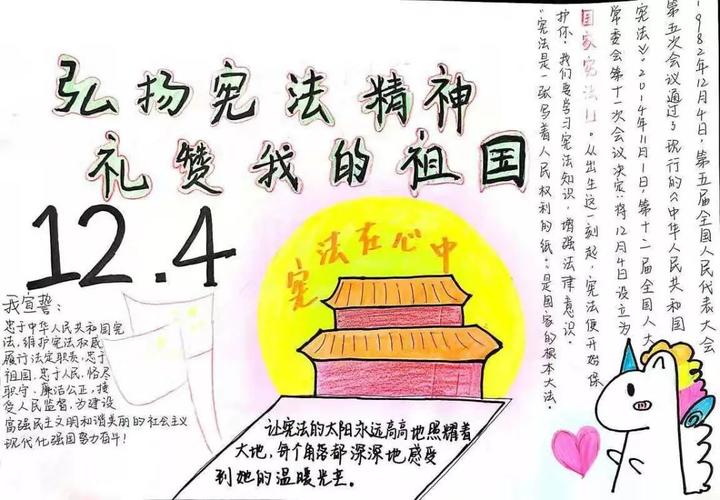 弘扬宪法精神
礼赞我的祖国
12.4
宪法在心中
我宣誓:
忠于中华人民共和国宪
法,维护宪法权威
履行法定职责,忠于
祖国,忠于人民,恪尽
职守、廉洁公正,接
受人民监督,为建设
富强民主文明和谐美丽的社会主义
现代化强国努力奋斗!
让宪法的太阳永远高高地照耀着
大地,每个角落都深深地感受
到她的温暖光芒。
1982年12月4日,第五届全国人民代表大会
第五次会议通过了现行的《中华人民共和国
宪法》。2014年11月1日,第十二届全国人大
常委会第十一次会议决定:将12月4日设立为
国家宪法日。从出生这一刻起,宪法便开始保
护你。我们要学习宪法知识,增强法律意识。
"宪法是一张写着人民权利的纸";是国家的根本大法。